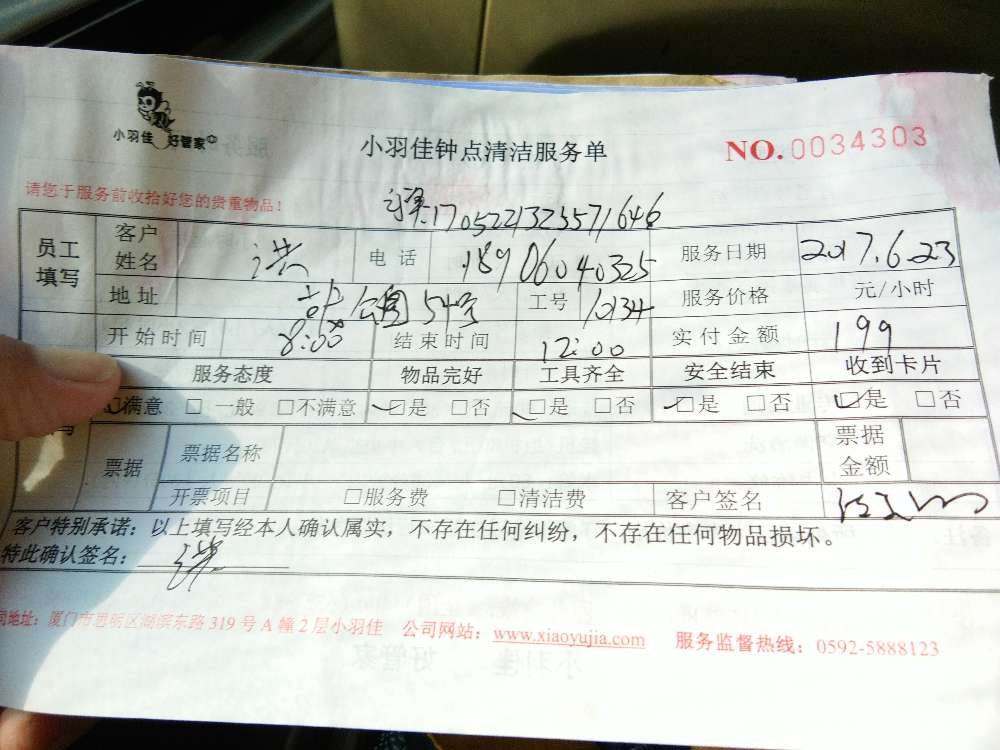 小羽佳 好管家
小羽佳钟点清洁服务单
NO.0034303
请您于服务前收拾好您的贵重物品！
1705221325571646
员工填写 客户姓名 洪 电话 18906040325 服务日期 2017.6.23
地址 公园54号 工号 10134 服务价格 元/小时
开始时间 8:00 结束时间 12:00 实付金额 199
服务态度 物品完好 工具齐全 安全结束 收到卡片
☑满意 □一般 □不满意 ☑是 □否 ☑是 □否 ☑是 □否 ☑是 □否
票据 票据名称 票据金额
开票项目 □服务费 □清洁费 客户签名
客户特别承诺：以上填写经本人确认属实，不存在任何纠纷，不存在任何物品损坏。
特此确认签名： 洪
司地址：厦门市思明区湖滨东路319号A幢2层小羽佳 公司网站：www.xiaoyujia.com 服务监督热线：0592-5888123